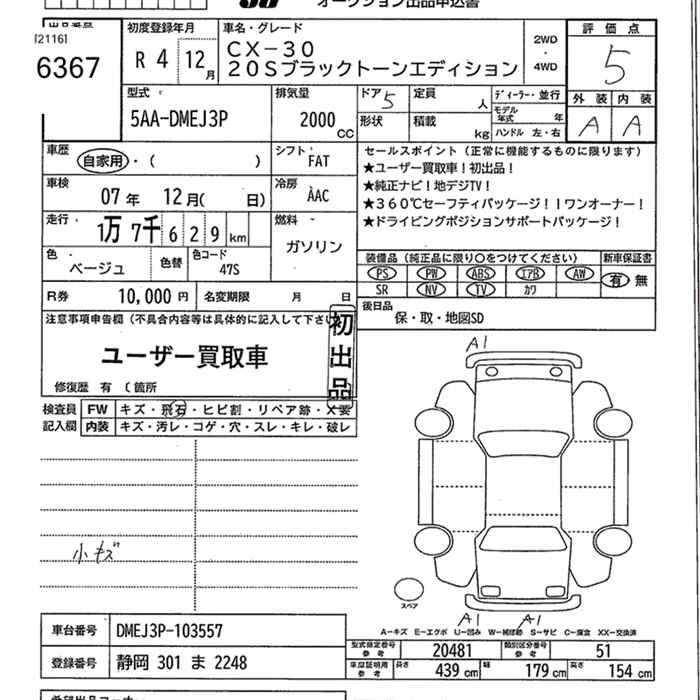 オークション出品申込書
出品番号
[2116]
6367
初度登録年月
R 4 12月
車名・グレード
CX-30
20Sブラックトーンエディション
2WD
・
4WD
評価点
5
外装 内装
A A
型式
5AA-DMEJ3P
排気量
2000 CC
ドア 5
形状
定員 人
積載 kg
ディーラー・並行
モデル年式 年
ハンドル 左・右
車歴
自家用・( )
シフト
FAT
車検
07年 12月( 日)
冷房
AAC
走行
1万 7千 6 2 9 km
燃料
ガソリン
色
ベージュ
色替
色コード
47S
R券 10,000円
名変期限 月 日
セールスポイント (正常に機能するものに限ります)
★ユーザー買取車!初出品!
★純正ナビ!地デジTV!
★360℃セーフティパッケージ!!ワンオーナー!
★ドライビングポジションサポートパッケージ!
装備品 (純正品に限り○をつけてください)
新車保証書
PS PW ABS エアB AW
有 無
SR NV TV カワ
後日品
保・取・地図SD
注意事項申告欄 (不具合内容等は具体的に記入して下さい
ユーザー買取車
初出品
修復歴 有 (箇所
検査員
記入欄
FW キズ・飛石・ヒビ割・リペア跡・X要
内装 キズ・汚レ・コゲ・穴・スレ・キレ・破レ
小キズ
A1
スペア
A1 A1
A-キズ E-エクボ U-凹み W-補修跡 S-サビ C-腐食 XX-交換済
車台番号 DMEJ3P-103557
登録番号 静岡 301 ま 2248
型式指定番号 参考 20481
類別区分番号 参考 51
車庫証明用 参考 長さ 439 cm 幅 179 cm 高さ 154 cm